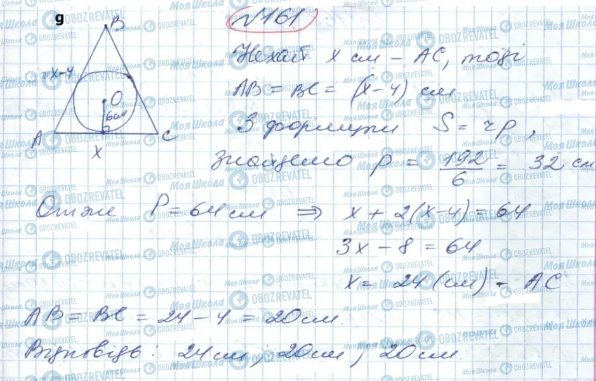 9
№161
B
x-4
O
6см
A
C
x
Нехай x см - AC, тоді
AB = BC = (x-4) см
З формули S = rp,
знайдемо p = 192/6 = 32 см
Отже P = 64 см ⇒ x + 2(x-4) = 64
3x - 8 = 64
x = 24 (см) - AC
AB = BC = 24 - 4 = 20 см.
Відповідь: 24 см; 20 см; 20 см.
Моя Школа
OBOZREVATEL